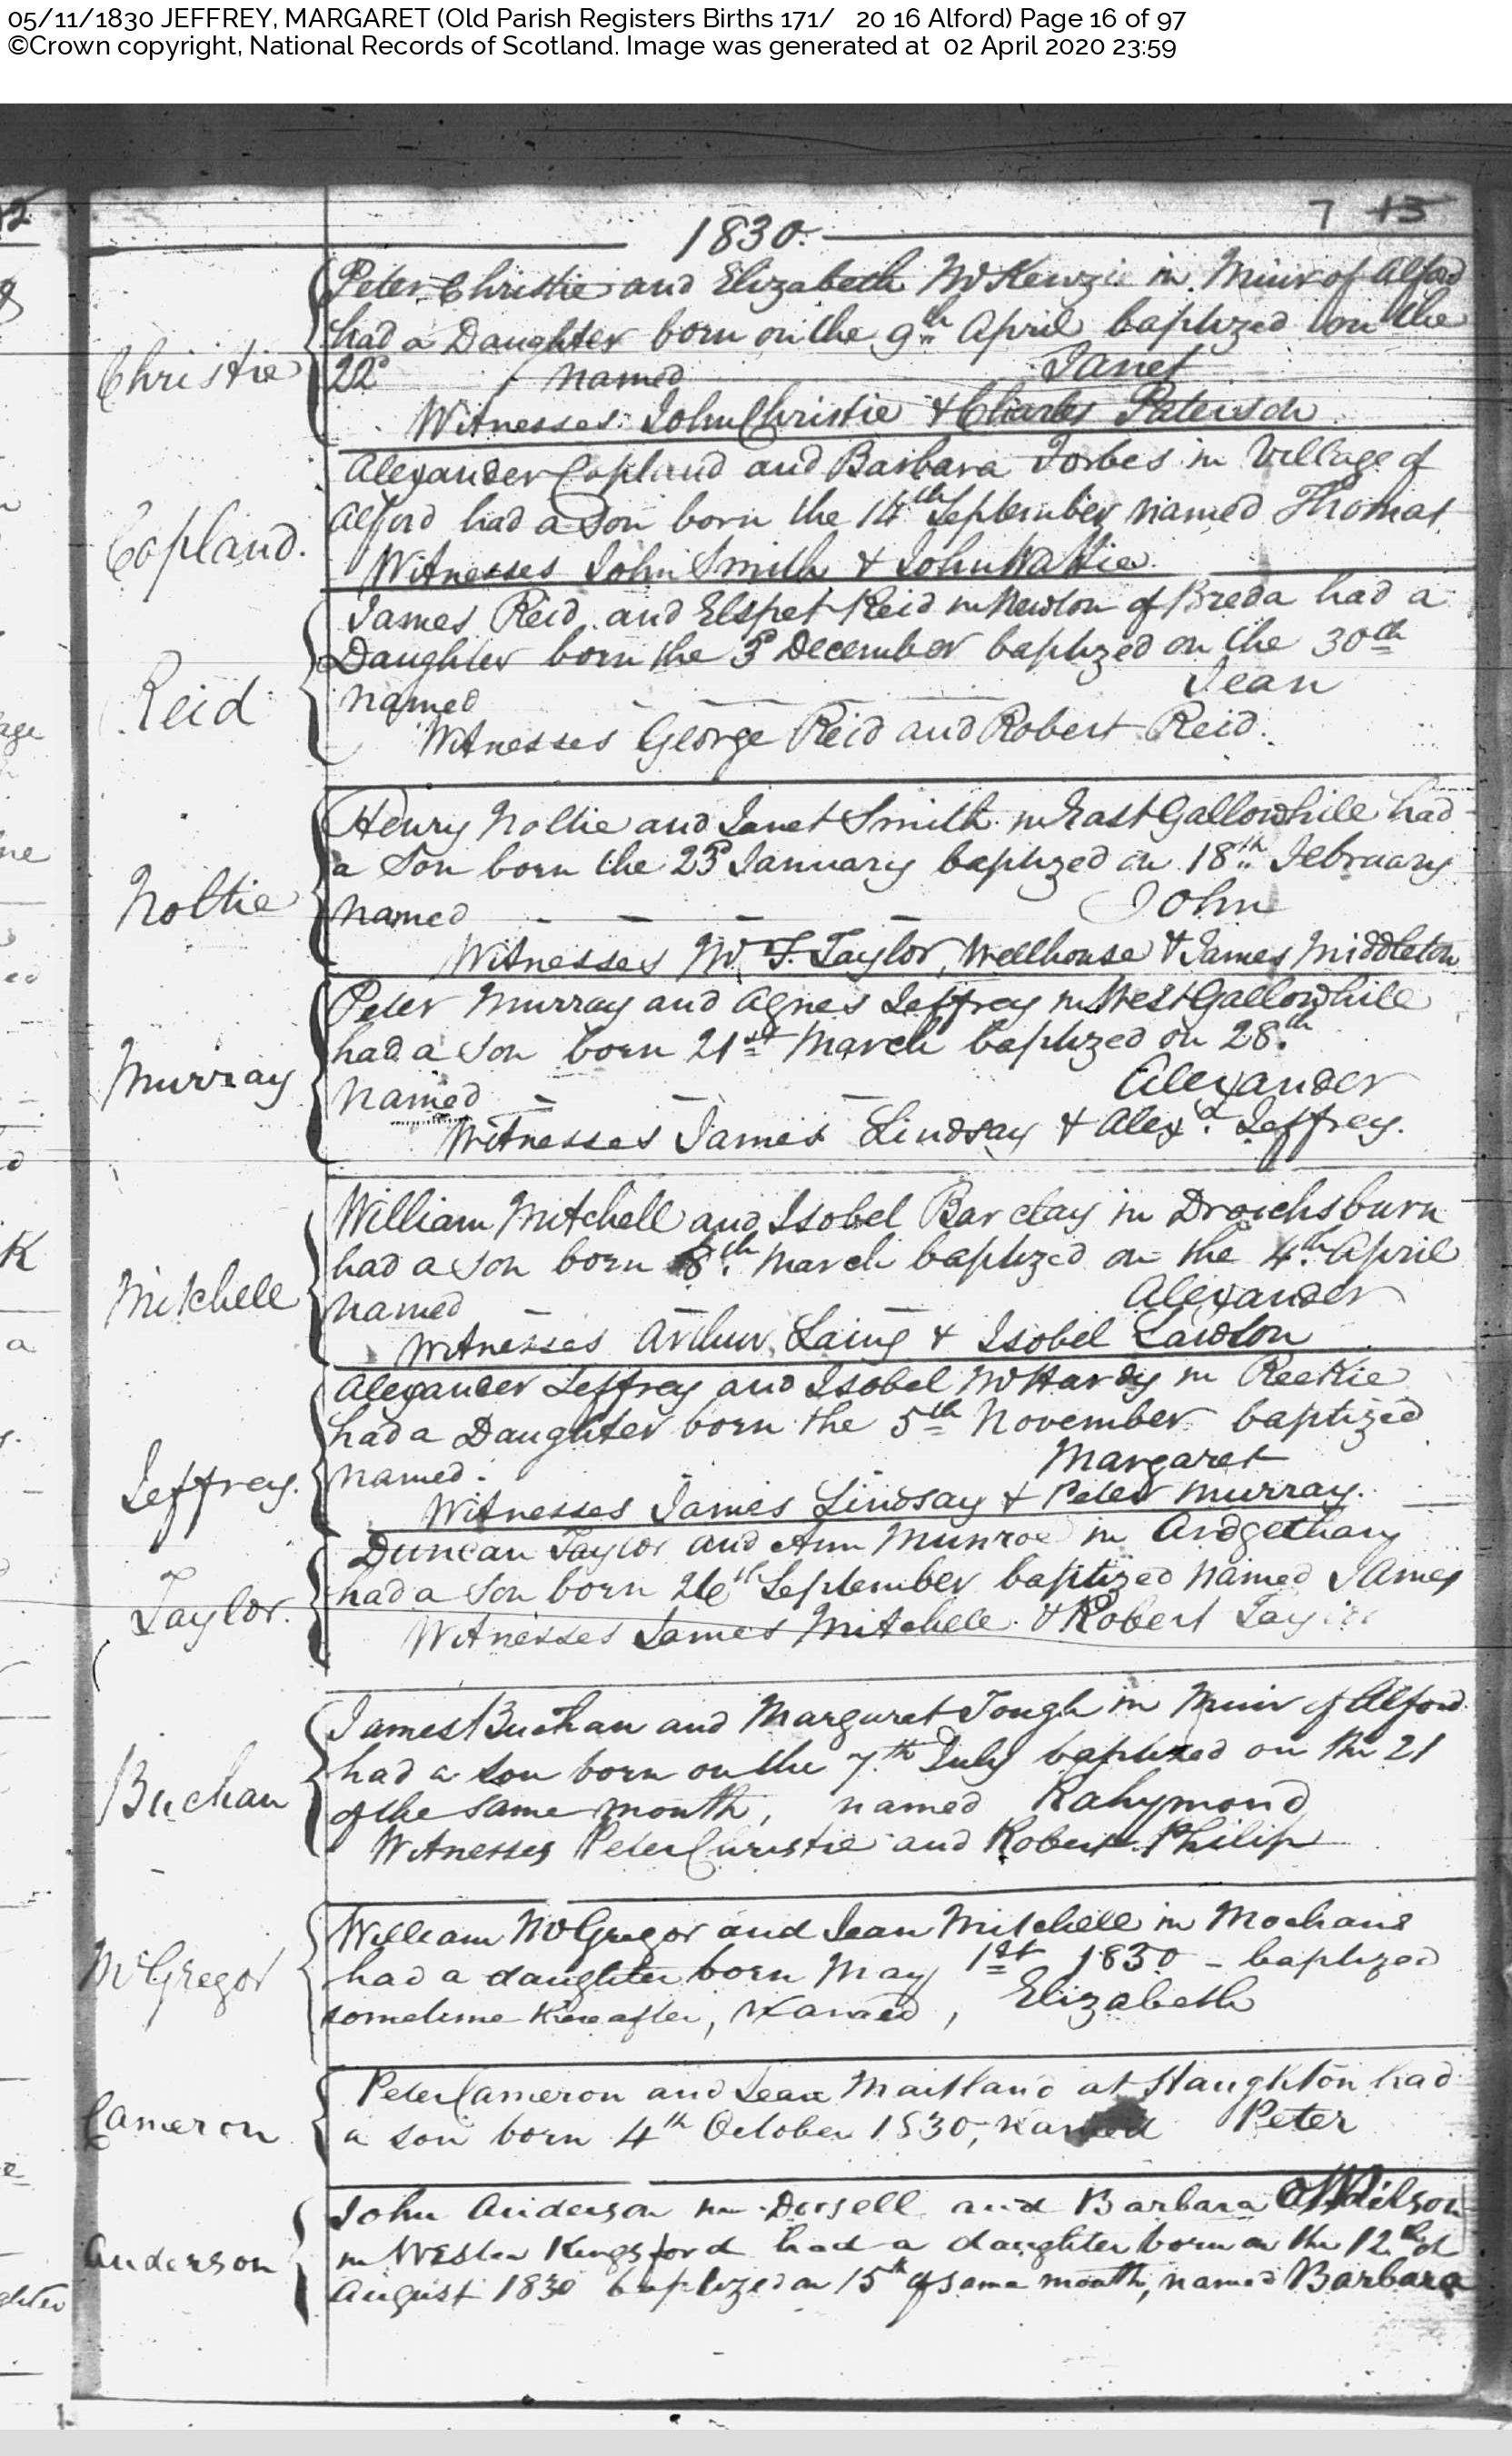 05/11/1830 JEFFREY, MARGARET (Old Parish Registers Births 171/ 20 16 Alford) Page 16 of 97
©Crown copyright, National Records of Scotland. Image was generated at 02 April 2020 23:59
12
7 13
1830.
Christie
Peter Christie and Elizabeth McKenzie in Muir of Alford
had a Daughter born on the 9th April baptized on the
22d named Janet
Witnesses John Christie & Charles Paterson
Copland.
Alexander Copland and Barbara Forbes in Village of
Alford had a Son born the 14th September named Thomas
Witnesses John Smith & John Wattie
Reid
James Reid and Elspet Reid in Newton of Breda had a
Daughter born the 3d December baptized on the 30th
named Jean
Witnesses George Reid and Robert Reid.
Noltie
Henry Noltie and Janet Smith in East Gallowhill had
a Son born the 23d January baptized on 18th February
named John
Witnesses Taylor, Wellhouse & James Middleton
Murray
Peter Murray and Agnes Jeffrey in West Gallowhill
had a Son born 21st March baptized on 28th
named Alexander
Witnesses James Lindsay & Alexr. Jeffrey.
Mitchell
William Mitchell and Isobel Barclay in Droichsburn
had a Son born 8th March baptized on the 4th April
named Alexander
Witnesses Arthur Laing & Isobel Lawson
Jeffrey.
Alexander Jeffrey and Isobel McHardy in Reekie
had a Daughter born the 5th November baptized
named Margaret
Witnesses James Lindsay & Peter Murray.
Taylor.
Duncan Taylor and Ann Munroe in Ardgethany
had a Son born 26th September baptized named James
Witnesses James Mitchell & Robert Taylor
Buchan
James Buchan and Margaret Tough in Muir of Alford
had a son born on the 7th July baptized on the 21
of the same month, named Rahymond
Witnesses Peter Christie and Robert Philip
McGregor
William McGregor and Jean Mitchell in Mochans
had a daughter born May 1st 1830 - baptized
sometime thereafter, Named, Elizabeth
Cameron
Peter Cameron and Jean Maitland at Haughton had
a son born 4th October 1830, named Peter
Anderson
John Anderson in Dorsell and Barbara Wilson
in Wester Kingsford had a daughter born on the 12th of
August 1830 baptized on 15th of same month, named Barbara